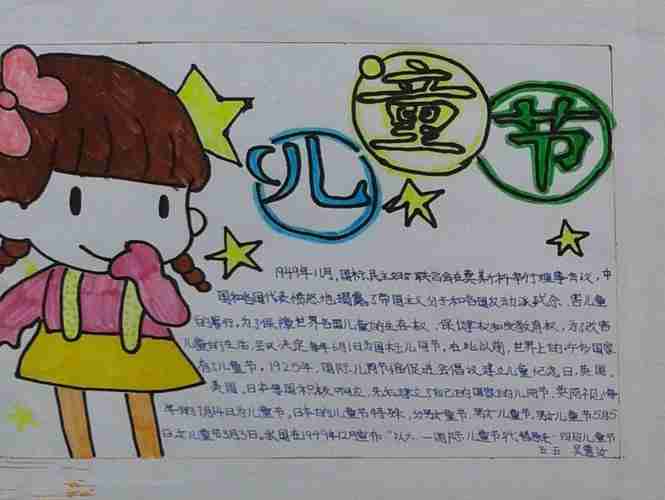 儿童节
1949年11月,国际民主妇女联合会在莫斯科举行理事会议,中
国和各国代表愤怒地揭露了帝国主义分子和各国反动派残杀、害儿童
的罪行,为了保障世界各国儿童的生存权、保健权和受教育权,为了改善
儿童的生活,会议决定每年6月1日为国际儿童节,在此以前,世界上的许多国家
有儿童节,1925年,国际儿童节推促进会倡议建立儿童纪念日,英国、
美国、日本等国积极响应,先后建立了自己的国家的儿童节,英国规定
每年的7月14日为儿童节,日本的儿童节特殊,分男女童节,男儿童节5月5
日,女儿童节3月3日。我国在1949年12月宣布"以六一国际儿童节代替原来四四儿童节
五五 吴